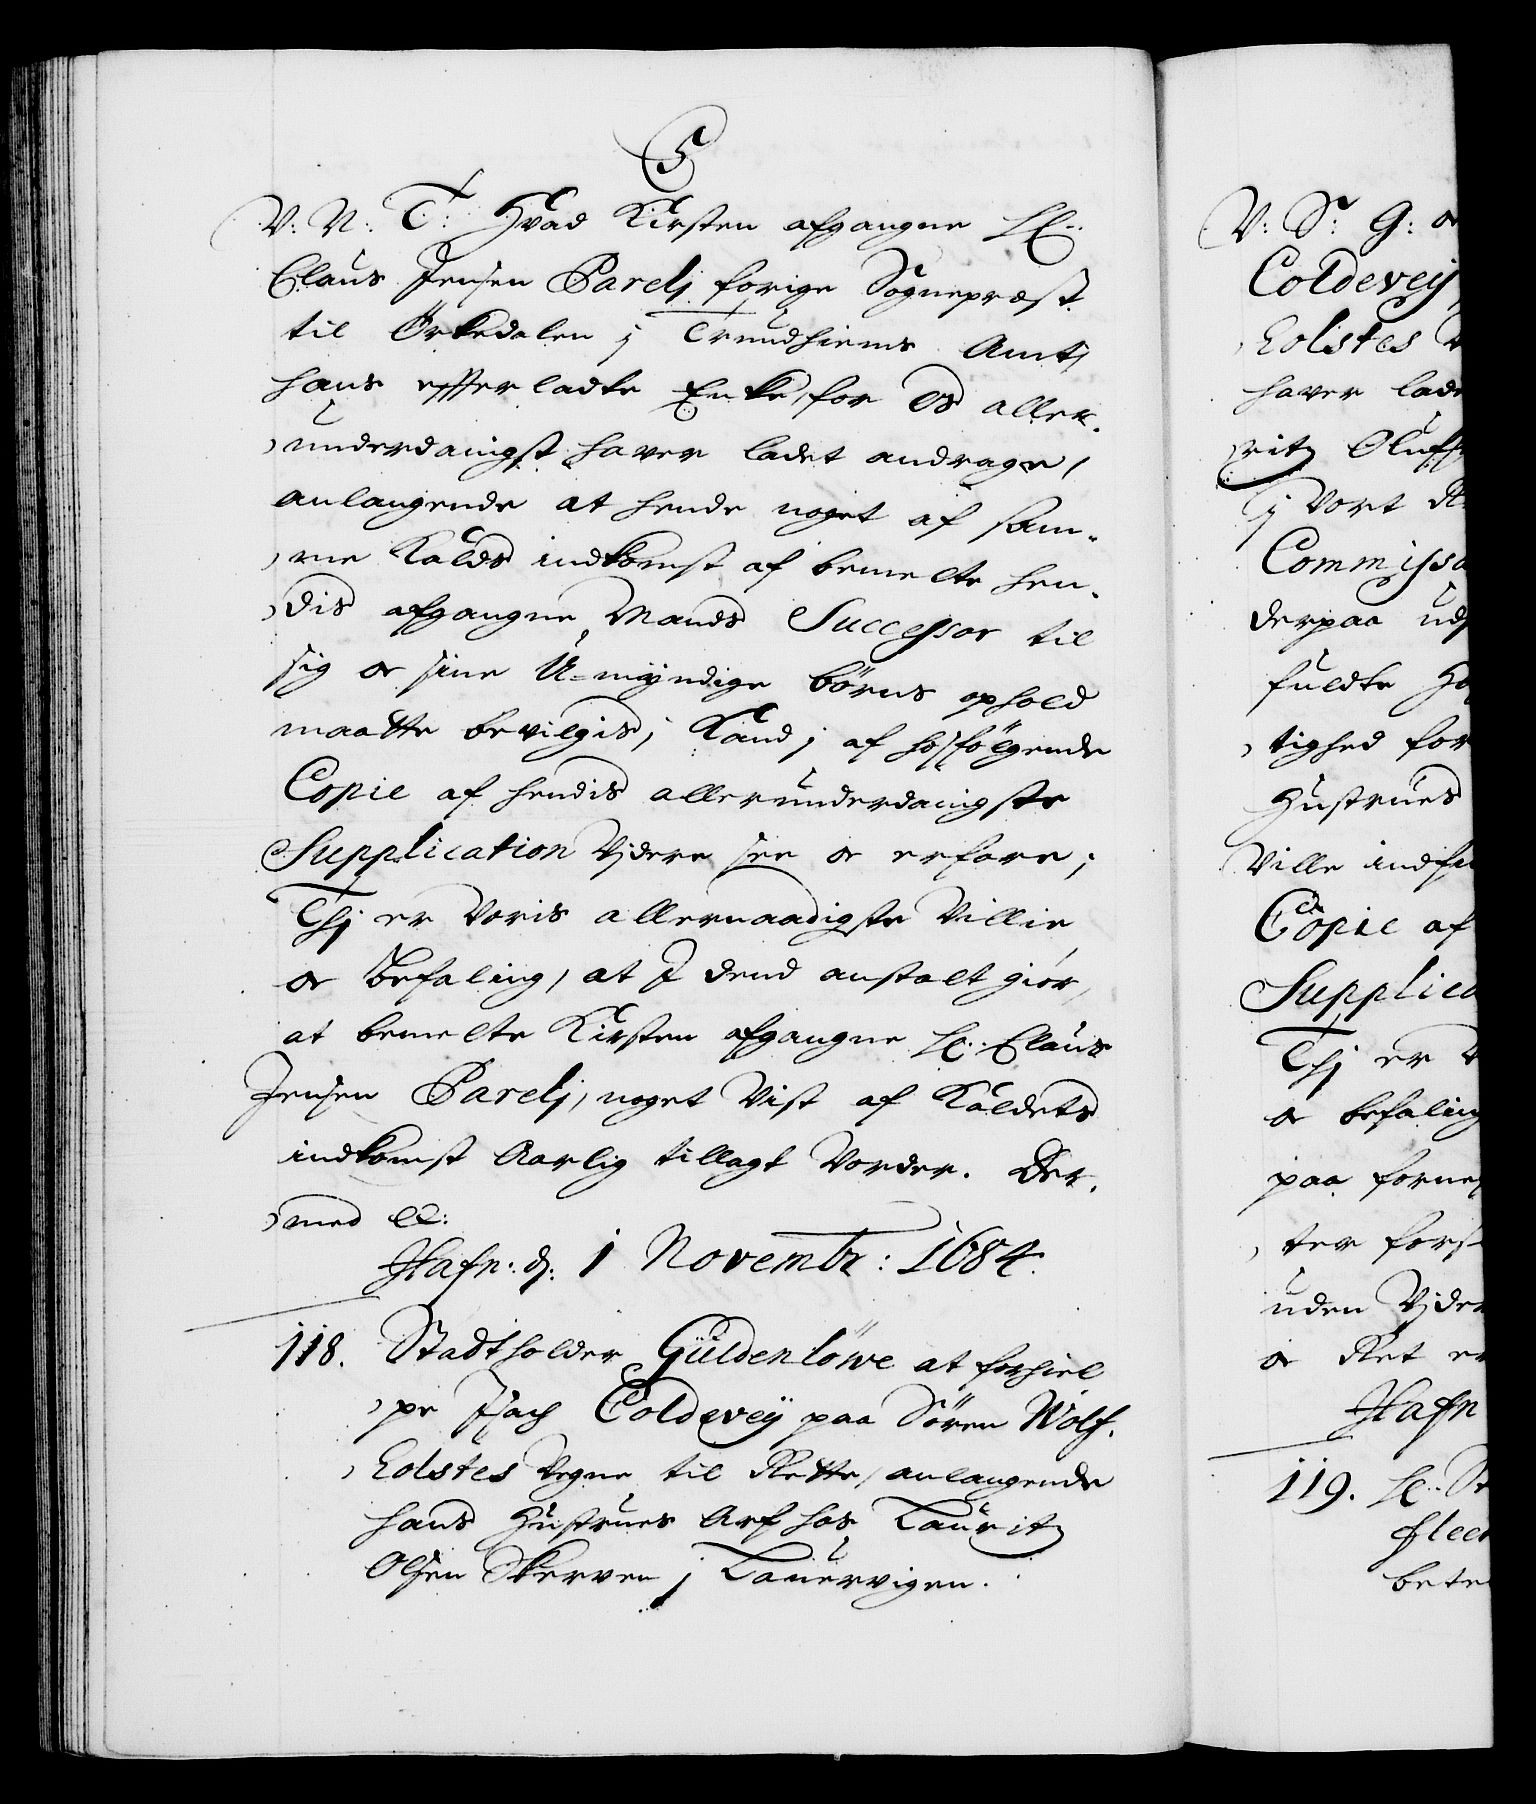 C5
V: V: T: Hvad Kirsten afgangne Hr:
Claus Jensen Parelj forige Sognepræst
til Örkedalen j Trundhiems Amt,
hans efterladte Encke, for Os aller-
underdanigst haver ladet andrage,
anlangende at hende noget af sam-
me Kalds indkomst af bemelte hen-
dis afgangne Mands Successor til
sig oc sine U-myndige börns ophold
maatte bevilgis, Kand j af hosfölgende
Copie af hendis allerunderdanigste
Supplication Vjdere see oc erfare;
Thj er Voris allernaadigste Villie
oc befaling, at I dend anstalt giör,
at bemelte Kirsten afgangne Hr: Claus
Jensen Parelj, noget Vist af Kaldets
indkomst Aarlig tillagt Vorder. Der-
med etc:
Hafn: d: 1 Novembr: 1684.
118. Stadtholder Güldenlöwe at forhiel
pe Isach Coldeveÿ paa Sören Wolf.
Eolstes Vegne til Rette, anlangende
hans Hustrues Arf hos Lauritz
Olsen Skerven j Lauervigen.
V: S: G: oc
Coldeveÿ
Eolstes
haver lade
ritz Oluf
j Vort
Commissa
derpaa uds
fuldte
tighed for
Hustrues
Ville indfi
Copie af
Supplica
Thj er V
oc befaling
paa forne
ter fors
uden Vjder
oc Ret er
Hafn
119. Hr: St
fleer
bete